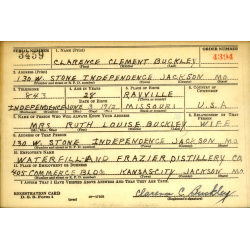 SERIAL NUMBER 1. NAME (Print) ORDER NUMBER
3459 CLARENCE CLEMENT BUCKLEY 4394
2. ADDRESS (Print)
130 W. STONE INDEPENDENCE JACKSON MO.
3. TELEPHONE 4. AGE IN YEARS 5. PLACE OF BIRTH 6. COUNTRY OF CITIZENSHIP
843 28 RAYVILLE
DATE OF BIRTH
INDEPENDENCE JUNE 3 1912 MISSOURI U.S.A.
7. NAME OF PERSON WHO WILL ALWAYS KNOW YOUR ADDRESS 8. RELATIONSHIP OF THAT PERSON
MRS. RUTH LOUISE BUCKLEY WIFE
9. ADDRESS OF THAT PERSON
130 W. STONE INDEPENDENCE JACKSON MO.
10. EMPLOYER'S NAME
WATERFILL AND FRAZIER DISTILLERY CO.
11. PLACE OF EMPLOYMENT OR BUSINESS
405 COMMERCE BLDG. KANSAS CITY JACKSON MO.
I AFFIRM THAT I HAVE VERIFIED ABOVE ANSWERS AND THAT THEY ARE TRUE.
REGISTRATION CARD
D. S. S. Form 1 Clarence C. Buckley